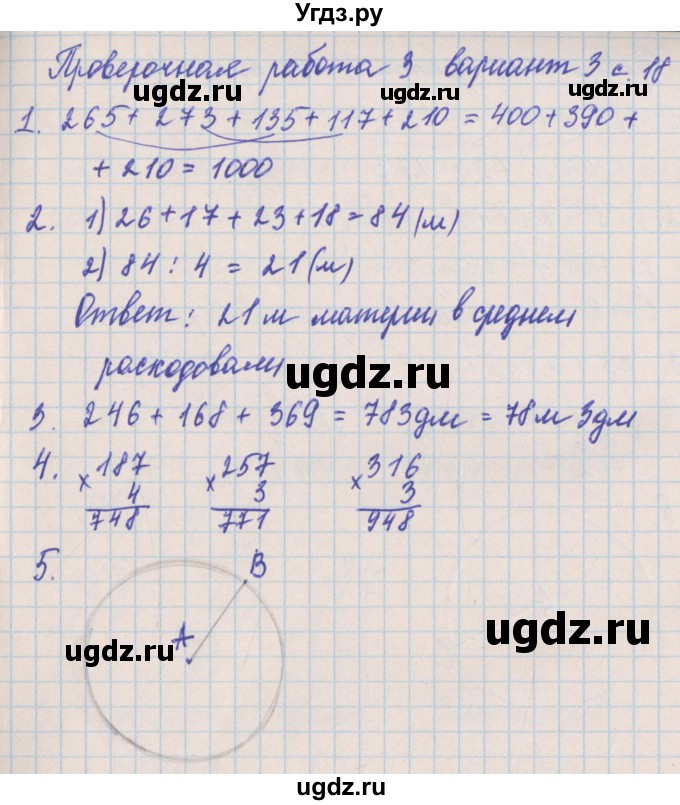 Угдз.ру
Проверочная работа 3 вариант 3 с. 18
ugdz.ru ugdz.ru
1. 265 + 273 + 135 + 117 + 210 = 400 + 390 +
+ 210 = 1000
2. 1) 26 + 17 + 23 + 18 = 84 (м)
2) 84 : 4 = 21 (м)
Ответ: 21 м материи в среднем
расходовали
ugdz.ru
3. 246 + 168 + 369 = 783 дм = 78 м 3 дм
4. × 187 × 257 × 316
4 3 3
748 771 948
5. B
A
ugdz.ru ugdz.ru
ugdz.ru